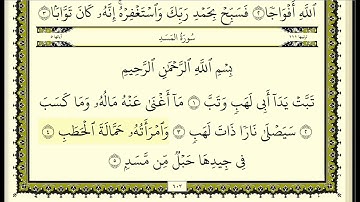 اللَّهِ أَفْوَاجًا ٢ فَسَبِّحْ بِحَمْدِ رَبِّكَ وَاسْتَغْفِرْهُ إِنَّهُ كَانَ تَوَّابًا ٣
سُورَةُ الْمَسَدِ
بِسْمِ اللَّهِ الرَّحْمَٰنِ الرَّحِيمِ
تَبَّتْ يَدَا أَبِي لَهَبٍ وَتَبَّ ١ مَا أَغْنَىٰ عَنْهُ مَالُهُ وَمَا كَسَبَ
٢ سَيَصْلَىٰ نَارًا ذَاتَ لَهَبٍ ٣ وَامْرَأَتُهُ حَمَّالَةَ الْحَطَبِ ٤
فِي جِيدِهَا حَبْلٌ مِّن مَّسَدٍ ٥
٦٠٢